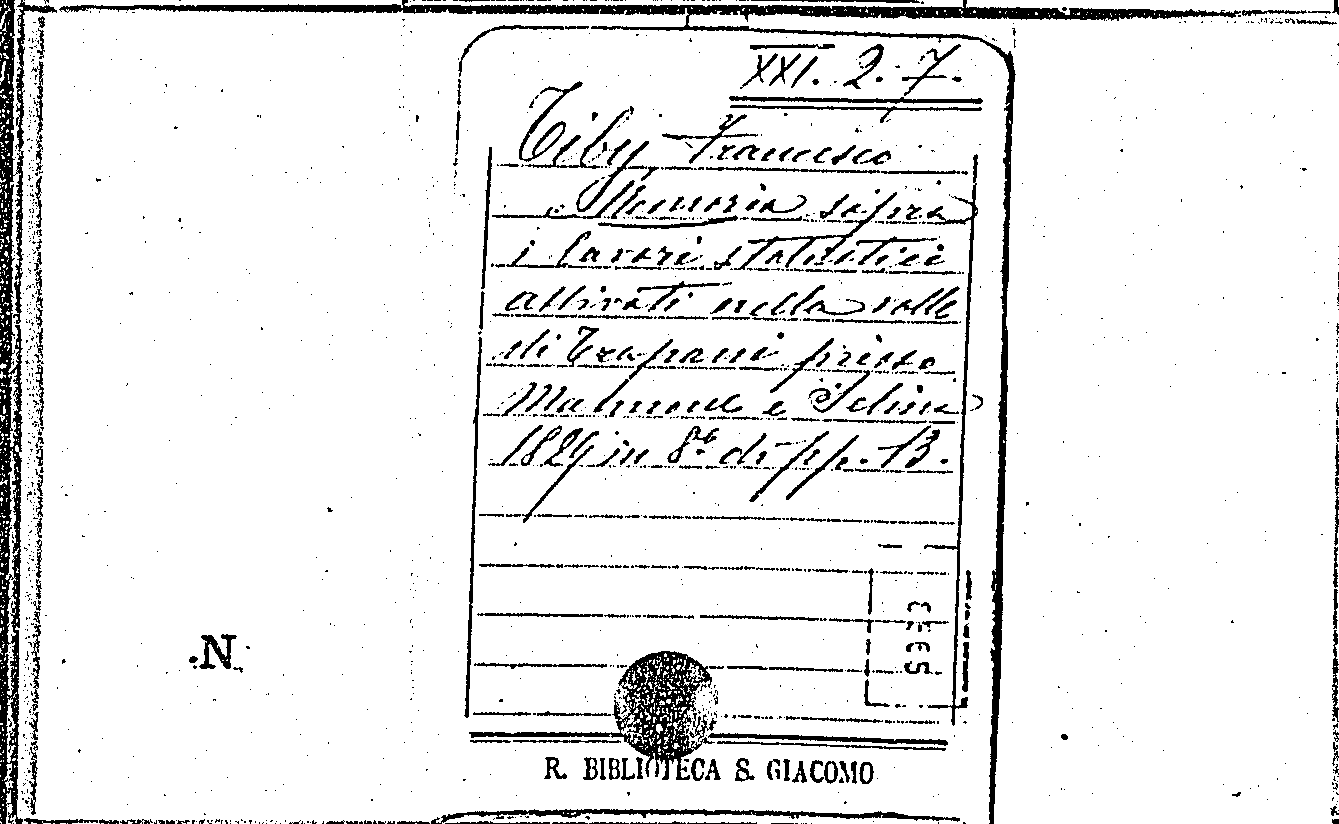 XXI. 2. 7.
Tiby Francesco
Memoria sopra
i lavori statistici
attivati nella valle
di Trapani presso
Mannone e Solina
1829 in 8.° di pp. 13.
N.
R. BIBLIOTECA S. GIACOMO